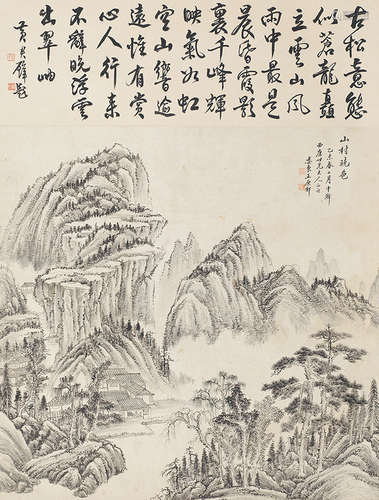 古松意態
似蒼龍矗
立雲山風
雨中最是
晨昏霞影
裏千峰輝
映氣如虹
空山響
遠惟有賞
心人行來
不辭晚浮雲
出翠岫
黃君璧題
山村曉色
乙未春月
婁東王